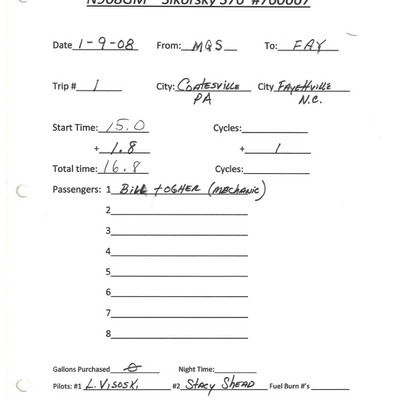 N508GM Sikorsky S76 #760607
Date 1-9-08 From: MQS To: FAY
Trip # 1 City: COATESVILLE City FAYETTVILLE
PA N.C.
Start Time: 15.0 Cycles:
+ 1.8 + 1
Total time: 16.8 Cycles:
Passengers: 1 BILL (MECHANIC)
2
3
4
5
6
7
8
Gallons Purchased Night Time:
Pilots: #1 L. VISOSKI #2 STACY SHEAD Fuel Burn #'s